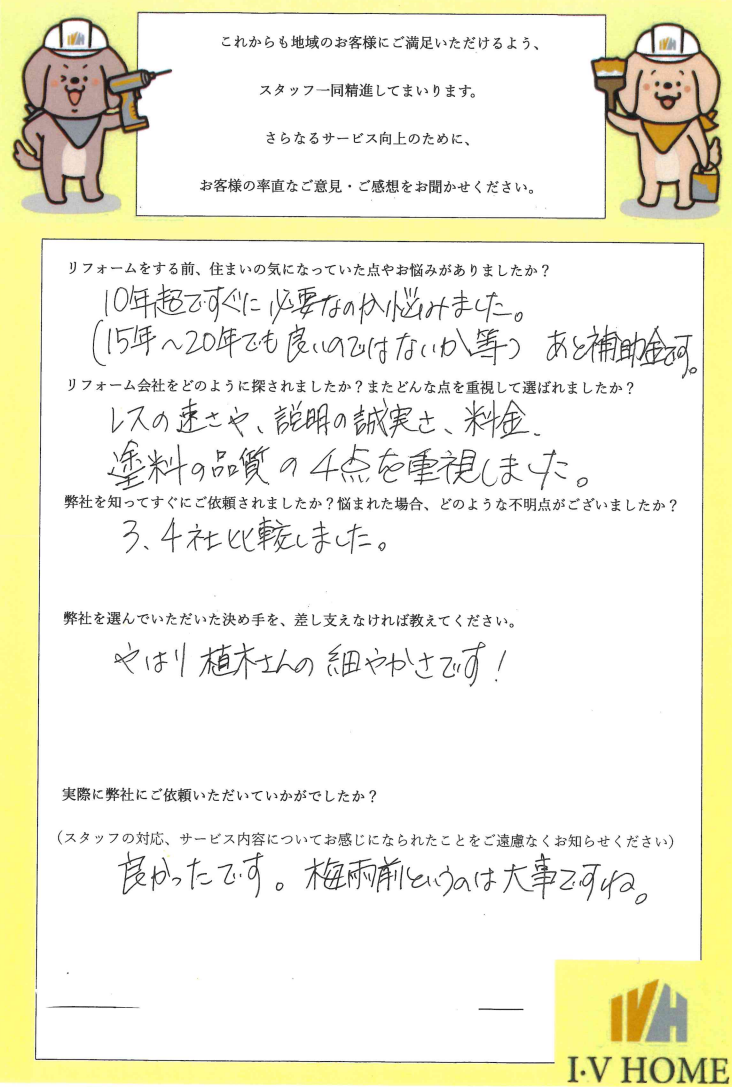 これからも地域のお客様にご満足いただけるよう、
スタッフ一同精進してまいります。
さらなるサービス向上のために、
お客様の率直なご意見・ご感想をお聞かせください。
リフォームをする前、住まいの気になっていた点やお悩みがありましたか?
10年超ですぐに必要なのか悩みました。
(15年〜20年でも良いのではないか等) あと補助金です。
リフォーム会社をどのように探されましたか?またどんな点を重視して選ばれましたか?
レスの速さや、説明の誠実さ、料金、
塗料の品質の4点を重視しました。
弊社を知ってすぐにご依頼されましたか?悩まれた場合、どのような不明点がございましたか?
3、4社比較しました。
弊社を選んでいただいた決め手を、差し支えなければ教えてください。
やはり植木さんの細やかさです!
実際に弊社にご依頼いただいていかがでしたか?
(スタッフの対応、サービス内容についてお感じになられたことをご遠慮なくお知らせください)
良かったです。梅雨前というのは大事ですね。
IVH
I·V HOME